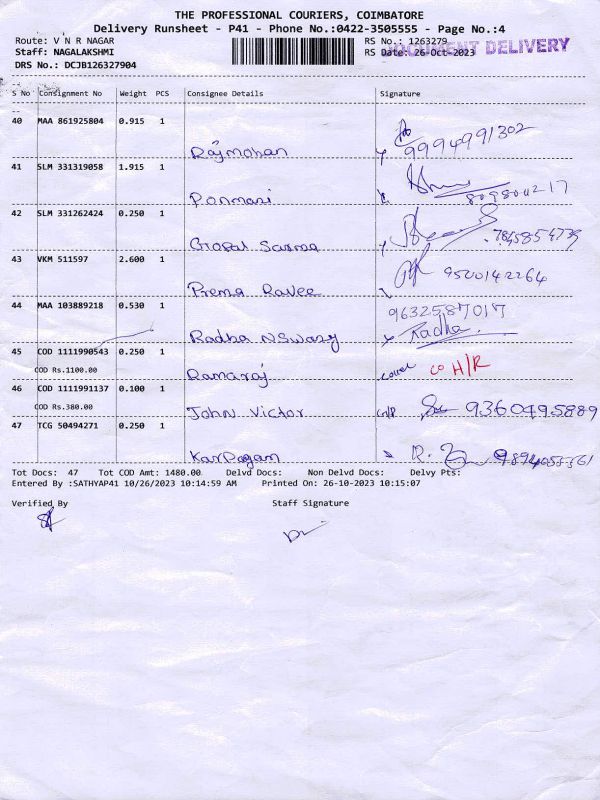 THE PROFESSIONAL COURIERS, COIMBATORE
Delivery Runsheet - P41 - Phone No.:0422-3505555 - Page No.:4
Route: V N R NAGAR RS No.: 1263279
Staff: NAGALAKSHMI RS Date: 26-Oct-2023 DOCUMENT DELIVERY
DRS No.: DCJB126327904
S No Consignment No Weight PCS Consignee Details Signature
40 MAA 861925804 0.915 1
Rajmohan 9994991302
41 SLM 331319058 1.915 1
Ponmani
42 SLM 331262424 0.250 1
Gopal Sarma
43 VKM 511597 2.600 1
Prema Ravee 9500142264
44 MAA 103889218 0.530 1 9632587017
Radha NSwamy Radha
45 COD 1111990543 0.250 1
COD Rs.1100.00
Ramaraj CO H/R
46 COD 1111991137 0.100 1
COD Rs.380.00
John Victor 9360495889
47 TCG 50494271 0.250 1
Karpagam
Tot Docs: 47 Tot COD Amt: 1480.00 Delvd Docs: Non Delvd Docs: Delvy Pts:
Entered By :SATHYAP41 10/26/2023 10:14:59 AM Printed On: 26-10-2023 10:15:07
Verified By Staff Signature